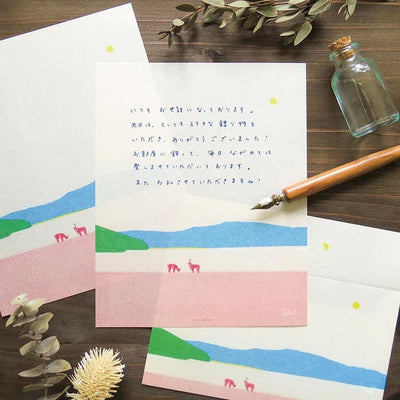 いつも お世話に なっております。
先日は、とっても ステキな 贈り物を
いただき、ありがとう ございました！
お部屋に 飾って、毎日 ながめては
癒しませていただいて おります。
また お礼させていただきますね！